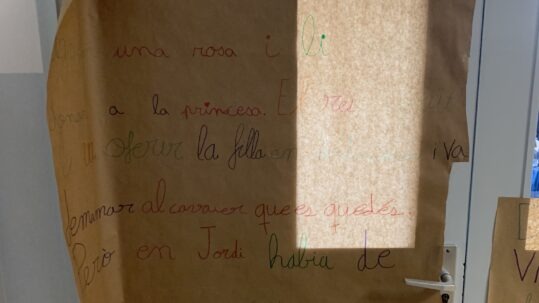 una rosa i li
a la princesa. El rei
oferir la filla en i va
demanar al cavaler que es quedés.
Però en Jordi habia de